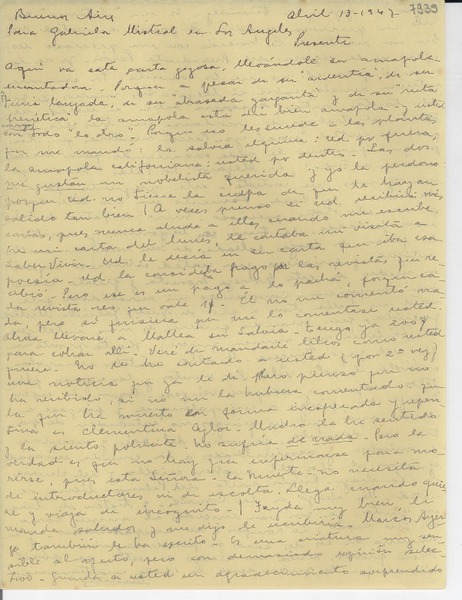 7939
Buenos Aires abril 13-1947
Para Gabriela Mistral en Los Angeles
Presente
Aquí va esta carta gozosa, llevándole su amapola
encantadora. Porque a pesar de su "ardentía", de su
furia lanzada, de su "abrasada garganta" y de su "ruta
frenética" la amapola está bien amapola y usted
con todo "lo dio". Porque eso les sucede a las plantas
que me mandó: la salvia
la amapola californiana: usted por dentro. Las dos
me gustan mi nobelista querida y yo la perdono
porque ud. no tiene la culpa de que le hayan
salido tan bien! A veces pienso si ud. recibirá mis
cartas, pues nunca alude a ellas cuando me escribe.
En mi carta del lunes, le contaba mi visita a
Saber Vivir. Ud. le decía en su carta que iba esa
poesía. Ud la considera pago las revistas que re
cibió. Pero ese es un pago a lo pachá, porque ca
da revista no vale 1$. El no me comentó na
da, pero si quisiera que me lo comentase usted.
llevaré a Mallea su Salvia. Tengo ya 100$
para cobrar allí. Veré de mandarle libros como usted
quiere. No le he contado a usted (por 2ª vez)
una noticia que ya le di. Pero pienso que no
ha recibido, si no me la hubiera comentado: que
la que ha muerto en forma inesperada y repen
tina es Clementina Azlor. Mucho la he sentido
y la siento, pobrecita. No sufría de nada. Pero la
verdad es que no hay que enfermarse para mo
rirse, pues esta Señora - la Muerte - no necesita
de introductores ni de escolta. Llega cuando quie
re y viaja de incógnito. Fryda muy bien, le
manda saludos y me dijo le escribiría. Marcos
también le ha escrito. Es una criatura muy sen
sible al afecto, pero con demasiado espíritu selec
tivo. Guarda a usted un agradecimiento sorprendido